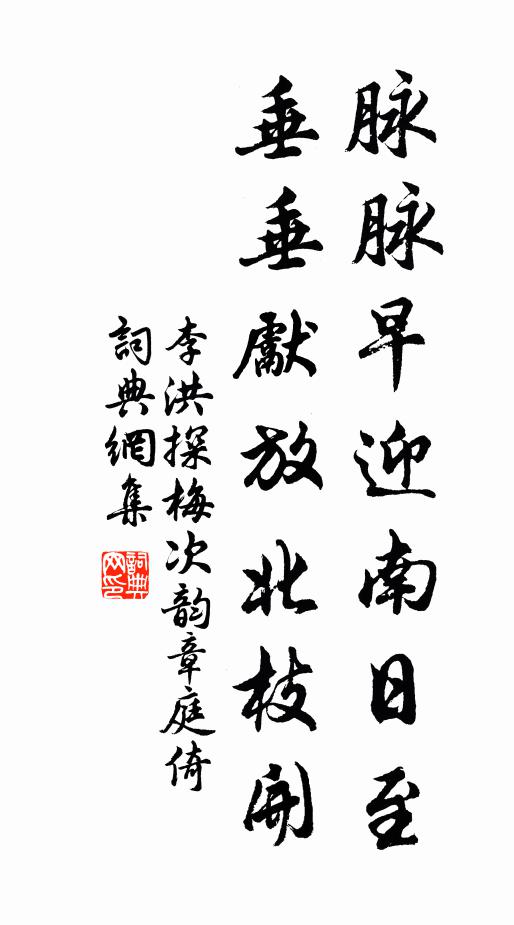 脉脉早迎南日至
垂垂獻放北枝開
李洪探梅次韵章庭倚
詞典網集
詞典網印